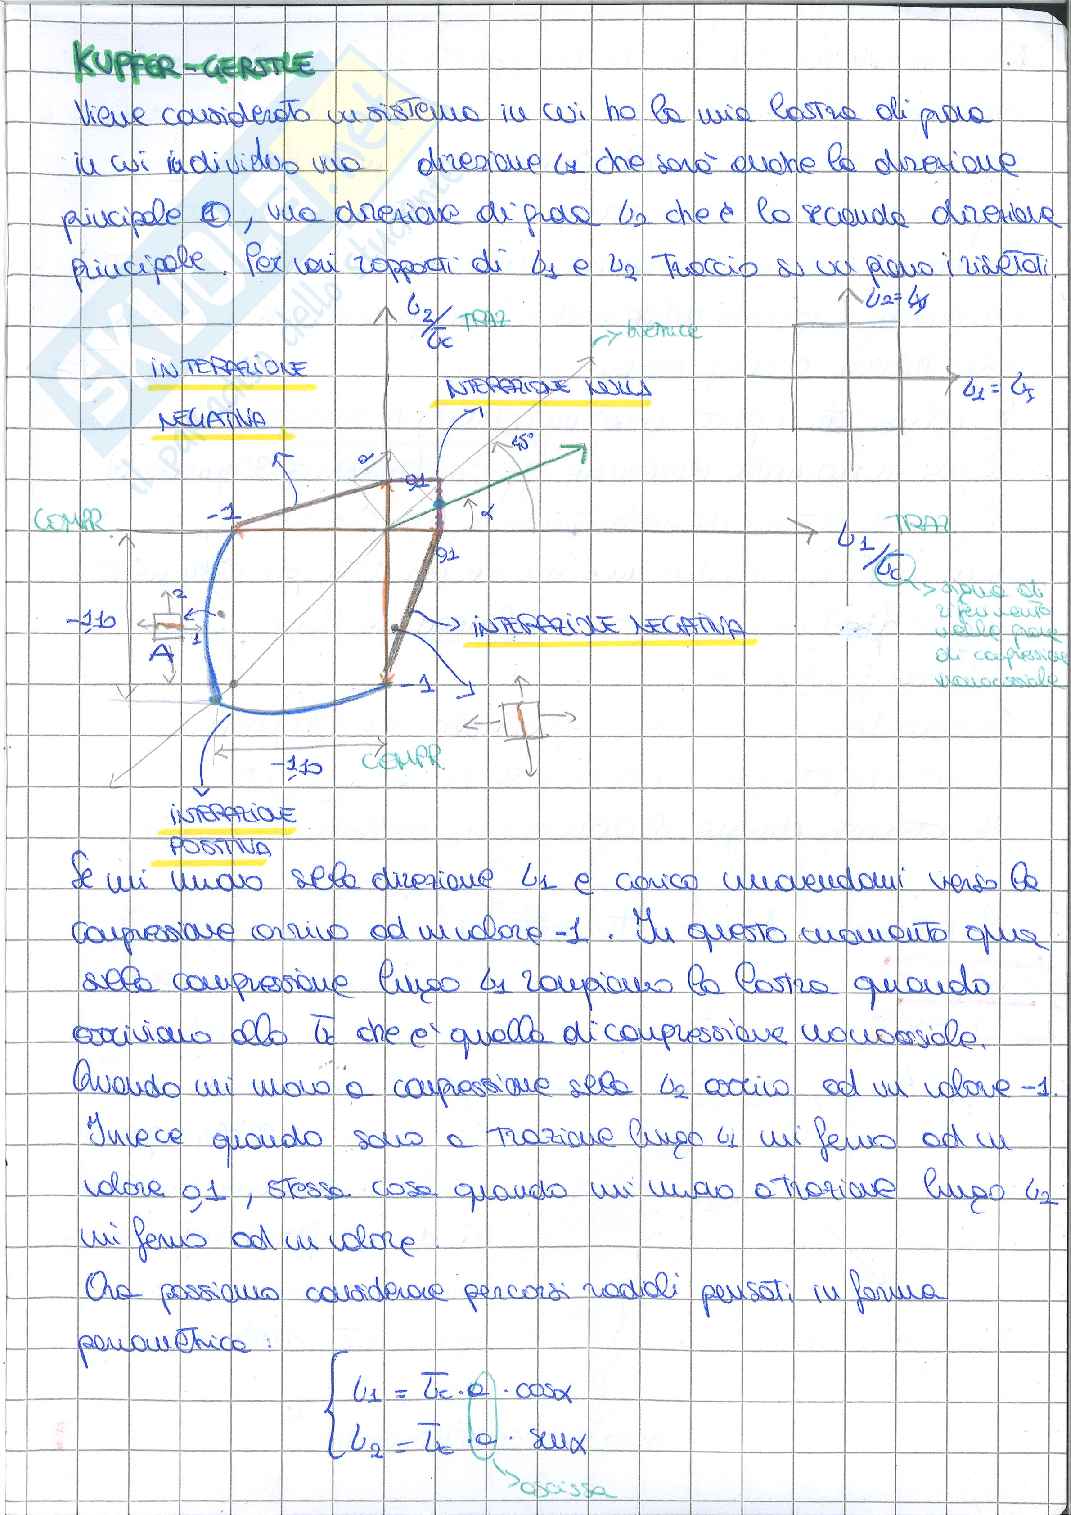 KUPFER-GERSTLE
Viene considerato un sistema in cui ho la mia lastra di prova
in cui individuo una direzione σ1 che sarà anche la direzione
principale ①, una direzione di prova σ2 che è la seconda direzione
principale. Per vari rapporti di σ1 e σ2 traccio su un piano i risultati.
σ2/σc TRAZ
bisettrice
σ2=
INTERAZIONE
NEGATIVA
INTERAZIONE NULLA
σ1=
45°
0,1
α
-1
COMPR
σ1/σc TRAZ
0,1
segno di
riferimento
nelle prove
di compressione
monoassiale
-1,10
2
1
A
INTERAZIONE NEGATIVA
-1
-1,10
COMPR
INTERAZIONE
POSITIVA
Se mi muovo sulla direzione σ1 e carico muovendomi verso la
compressione arrivo ad un valore -1. In questo momento
sulla compressione lungo σ1 rompiamo la lastra quando
arriviamo alla σc che è quella di compressione monoassiale.
Quando mi muovo a compressione sulla σ2 arrivo ad un valore -1.
Invece quando sono a trazione lungo σ1 mi fermo ad un
valore 0,1, stessa cosa quando mi muovo a trazione lungo σ2
mi fermo ad un valore.
Ora possiamo considerare percorsi radiali pensati in forma
parametrica:
σ1 = σc · a · cosα
σ2 = σc · a · senα
ascissa
il paradiso dello studente
SKUOLA.net